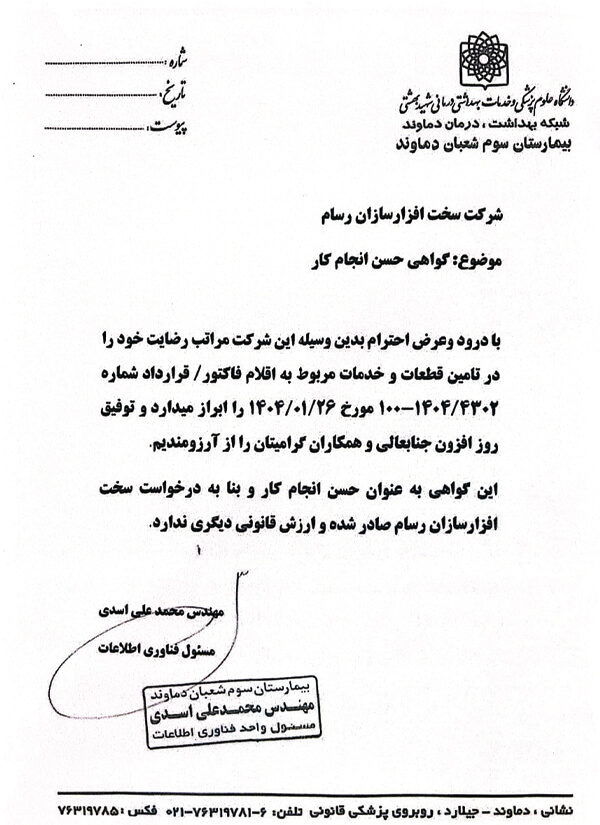 شماره :
تاریخ:
پیوست:
دانشگاه علوم پزشکی و خدمات بهداشتی درمانی شهید بهشتی
شبکه بهداشت ، درمان دماوند
بیمارستان سوم شعبان دماوند
شرکت سخت افزارسازان رسام
موضوع: گواهی حسن انجام کار
با درود وعرض احترام بدین وسیله این شرکت مراتب رضایت خود را
در تامین قطعات و خدمات مربوط به اقلام فاکتور/ قرارداد شماره
۱۰۰-۱۴۰۴/۴۳۰۲ مورخ ۱۴۰۴/۰۱/۲۶ را ابراز میدارد و توفیق
روز افزون جنابعالی و همکاران گرامیتان را از آرزومندیم.
این گواهی به عنوان حسن انجام کار و بنا به درخواست سخت
افزارسازان رسام صادر شده و ارزش قانونی دیگری ندارد.
مهندس محمد علی اسدی
مسئول فناوری اطلاعات
بیمارستان سوم شعبان دماوند
مهندس محمدعلی اسدی
مسئول واحد فناوری اطلاعات
نشانی ، دماوند - جیلارد ، روبروی پزشکی قانونی تلفن: ۶-۷۶۳۱۹۷۸۱-۰۲۱ فکس : ۷۶۳۱۹۷۸۵